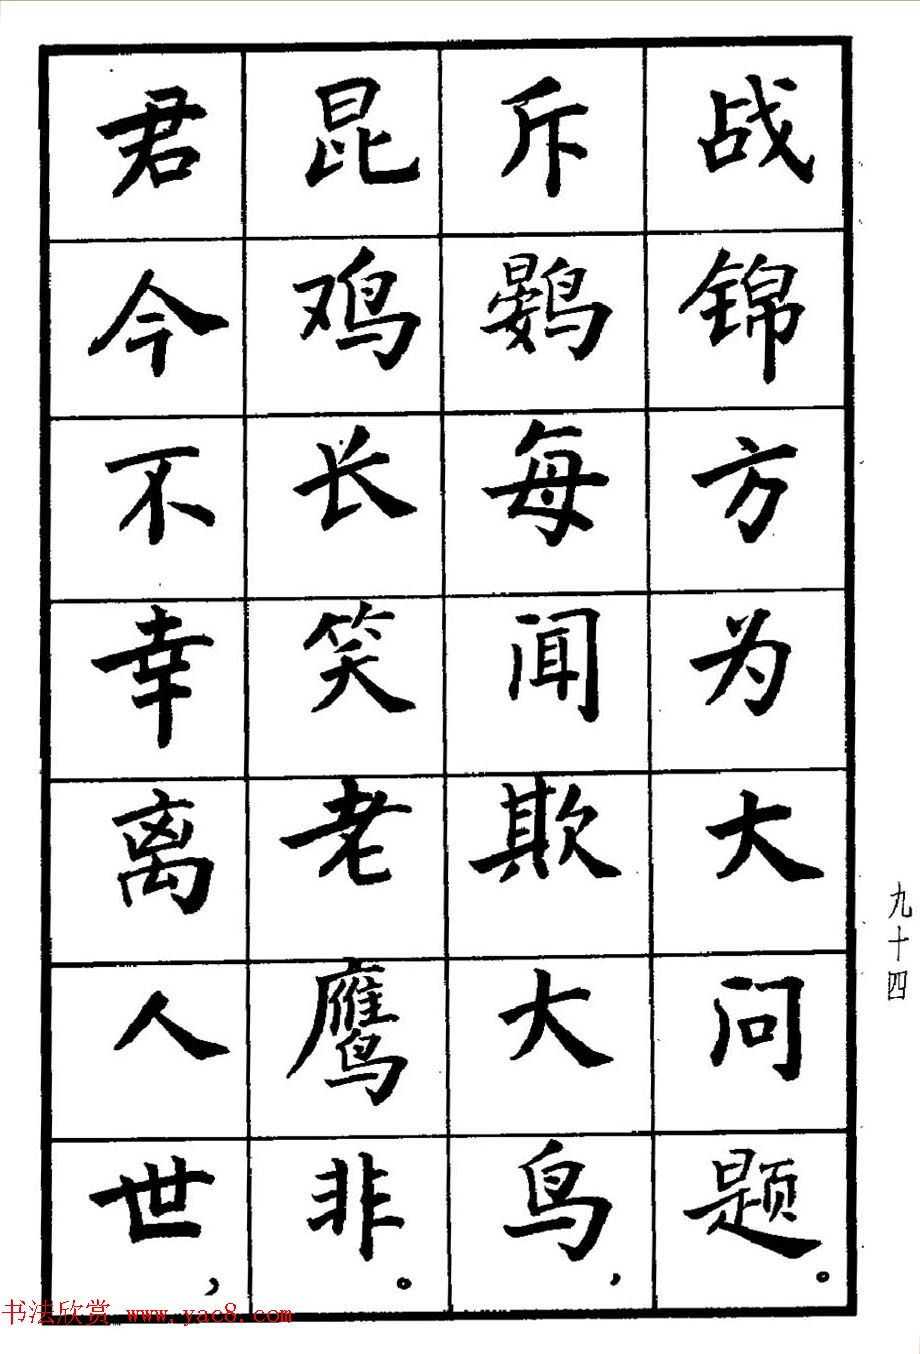 战锦方为大问题。
斥鷃每闻欺大鸟，
昆鸡长笑老鹰非。
君今不幸离人世，
九十四
书法欣赏 www.yac8.com